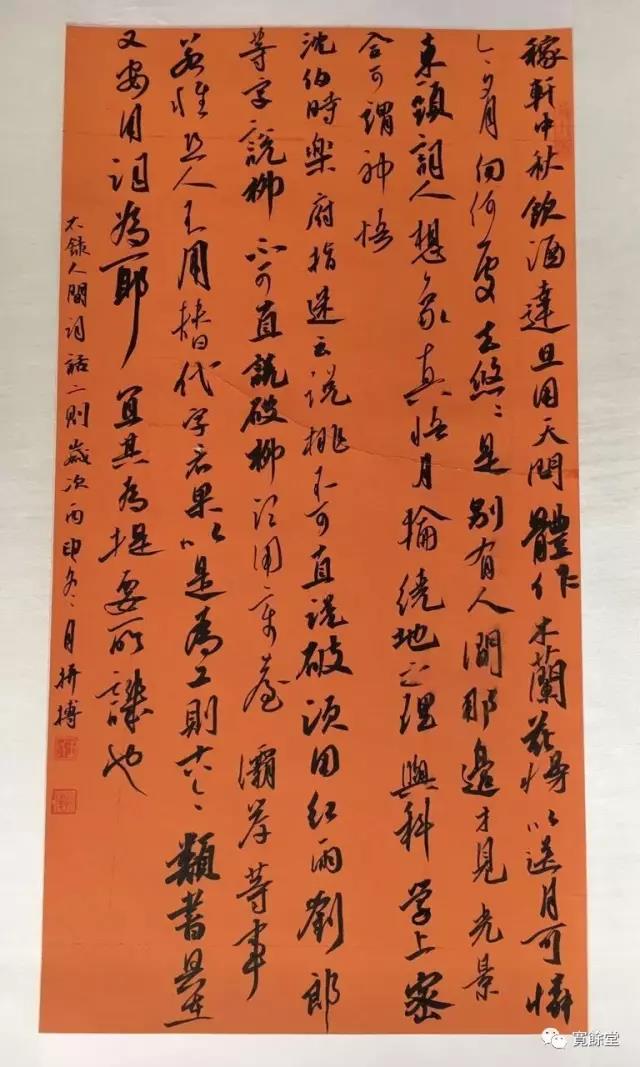 稼軒中秋飲酒達旦用天問體作木蘭花慢以送月可憐
今夕月向何處去悠悠是別有人間那邊才見光景
東頭詞人想象直悟月輪繞地之理與科學上密
合可謂神悟
沈伯時樂府指迷云說桃不可直說破須用紅雨劉郎
等字說柳不可直說破柳須用章臺灞岸等事
若惟恐人不用替代字者果以是為工則古今類書具在
又安用詞為耶宜其為提要所譏也
右錄人間詞話二則歲次丙申冬月拼搏
寬餘堂